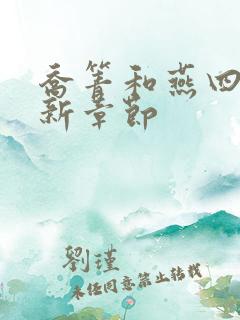 喬箐和燕四
新章節
劉瑾
未经同意禁止转载